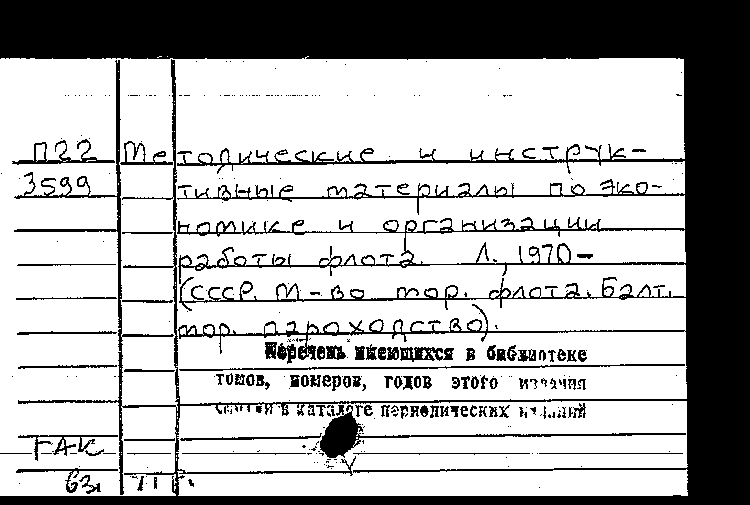 П22 Методические и инструк-
3599 тивные материалы по эко-
номике и организации
работы флота. Л., 1970-
(СССР. М-во мор. флота. Балт.
мор. пароходство).
Перечень имеющихся в библиотеке
томов, номеров, годов этого издания
смотри в каталоге периодических изданий
ГАК
63, 71 г.